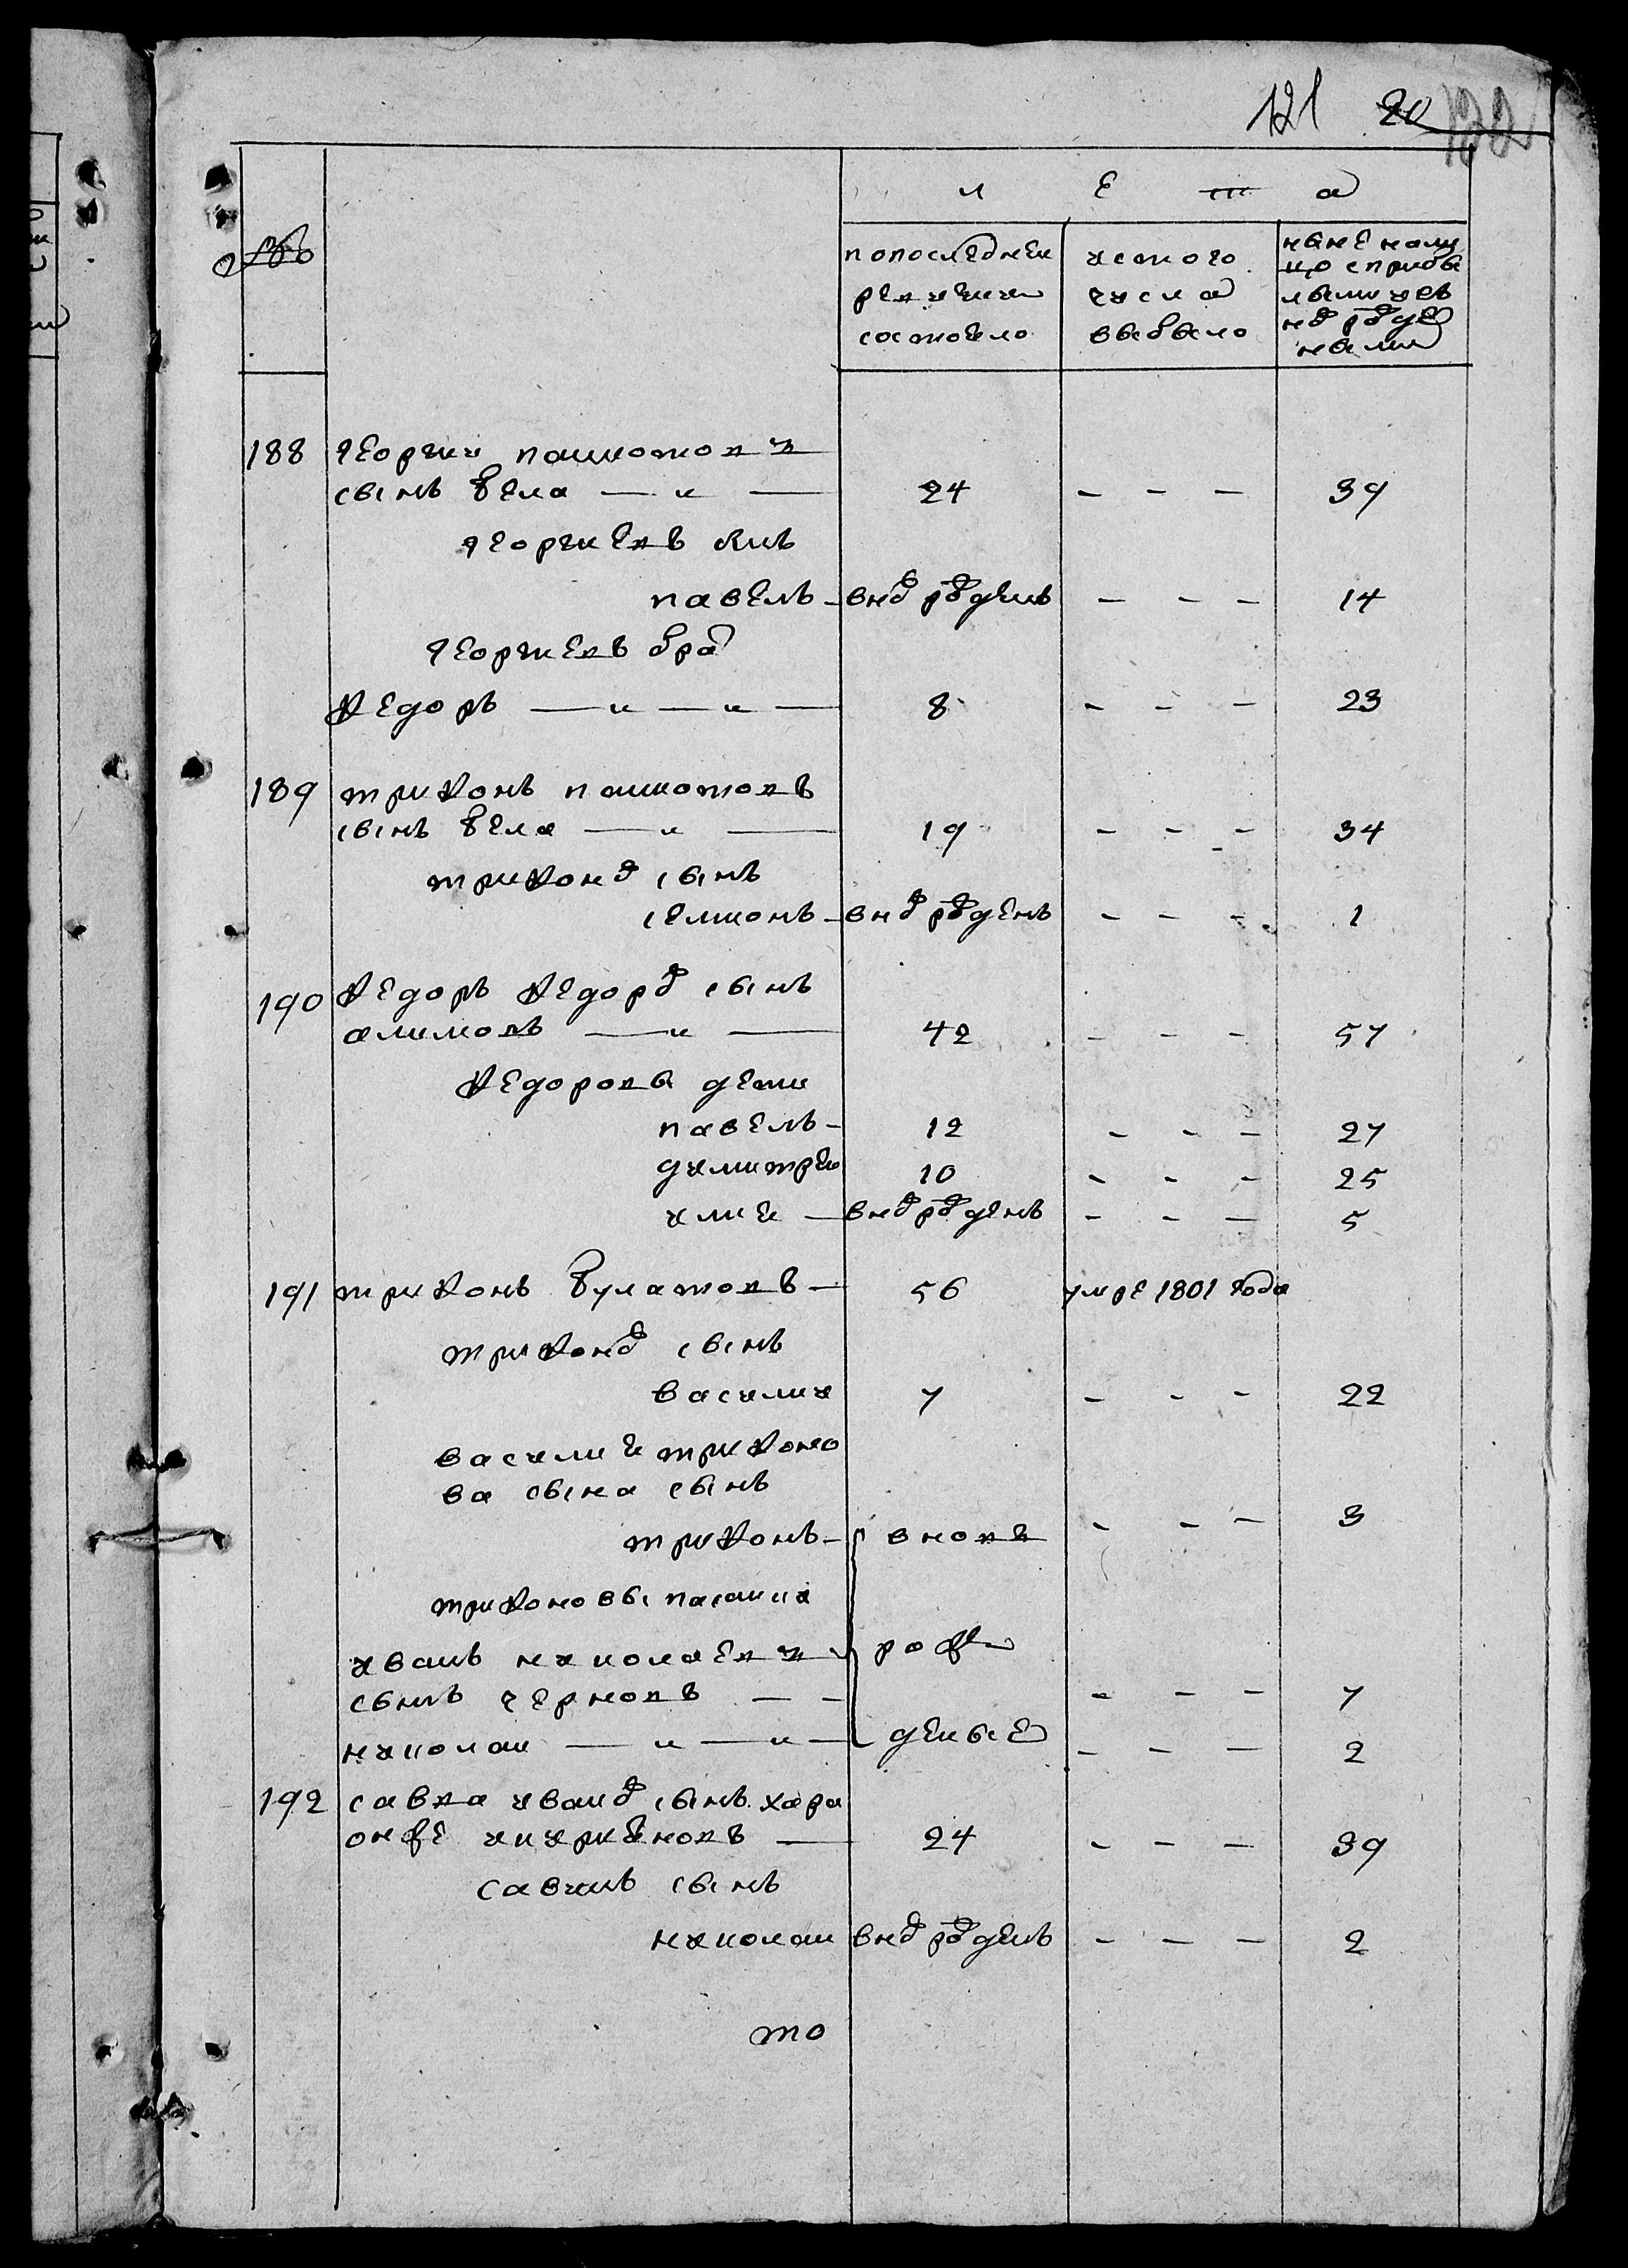 121 20 122
лета
№
по последней
ревизии
состояло
ис того
числа
выбыло
ныне на ли
цо с прибы
лыми и вь
нов рожде
ными
188 георгии пашкотови
сынъ бела — „ — 24 - - - 39
георгиевъ сынъ
павелъ - внов рожденъ - - - 14
георгиевъ брат
Федоръ — „ — „ — 8 - - - 23
189 трифонъ пашкотовъ
сынъ бела — „ — 19 - - - 34
трифонов сынъ
семионъ - внов рожденъ - - - 1
190 Федоръ Федоров сынъ
алимовъ — „ — 42 - - - 57
Федоровы дети
павелъ - 12 - - - 27
димитреи 10 - - - 25
илие — внов рожденъ - - - 5
191 трифонъ булатовъ — 56 умре 1801 года
трифонов сынъ
василии 7 - - - 22
василие трифоно
ва сына сынъ
трифонъ - вновь - - - 3
трифоновы пасынки
иванъ николаеви рож
сынъ черновъ — - - - - 7
николаи — „ — „ — деные - - - 2
192 савва иванов сынъ хара
онже икириеновъ — 24 - - - 39
савинъ сынъ
николаи внов рожденъ - - - 2
то